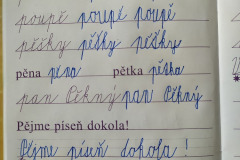 poupě poupě poupě
pěšky pěšky pěšky
pěna pěna pětka pětka
pan Pěkný pan Pěkný
Pějme píseň dokola!
Pějme píseň dokola!